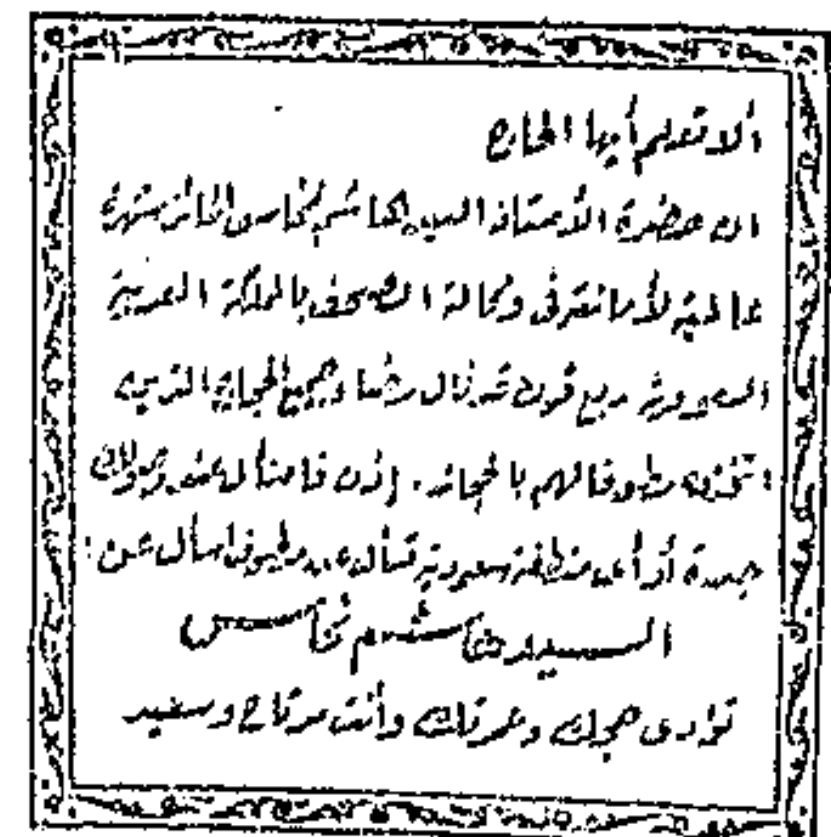 ألا تعلم أيها الحاج
ان حضرة الأستاذ السيد هاشم نحاس الحائز شهرة
عالمية لأمانته في وكالة الصحف بالمملكة العربية
السعودية ربع قرن قد نال رضا جميع الحجاج الذين
اتخذوه مطوفا لهم بالحجاز . إذن فاسأل عند وصولك
جدة أو أي منطقة سعودية تسأل عن مطوف اسأل عن :
السيد هاشم نحاس
تؤدى حجك وعمرتك وأنت مرتاح وسعيد